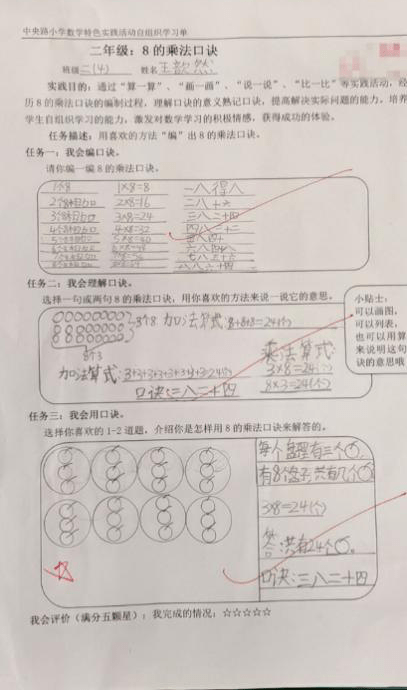 中央路小学数学特色实践活动自组织学习单
二年级:8的乘法口诀
班级 二(4) 姓名 王
实践目的:通过“算一算”、“画一画”、“说一说”、“比一比”等实践活动,经
历8的乘法口诀的编制过程,理解口诀的意义熟记口诀,提高解决实际问题的能力,培养
学生自组织学习的能力,激发对数学学习的积极情感,获得成功的体验。
任务描述:用喜欢的方法“编”出8的乘法口诀。
任务一:我会编口诀。
请你编一编8的乘法口诀。
1个8 1×8=8 一八得八
2个8相加 2×8=16 二八十六
3个8相加 3×8=24 三八二十四
4个8相加 4×8=32 四八三十二
任务二:我会理解口诀。
选择一句或两句8的乘法口诀,用你喜欢的方法来说一说它的意思。
小贴士:
可以画图,
可以列表,
也可以用算
来说明这句
诀的意思哦
3个8 加法算式:8+8+8=24(个)
8个3
乘法算式
加法算式:3+3+3+3+3+3+3+3=24(个) 3×8=24(个)
口诀:三八二十四 8×3=24(个)
任务三:我会用口诀。
选择你喜欢的1-2道题,介绍你是怎样用8的乘法口诀来解答的。
每个盘里有三个
有8个盘子,共有几个
3×8=24(个)
答:共有24个
口诀:三八二十四
我会评价(满分五颗星):我完成的情况:☆☆☆☆☆